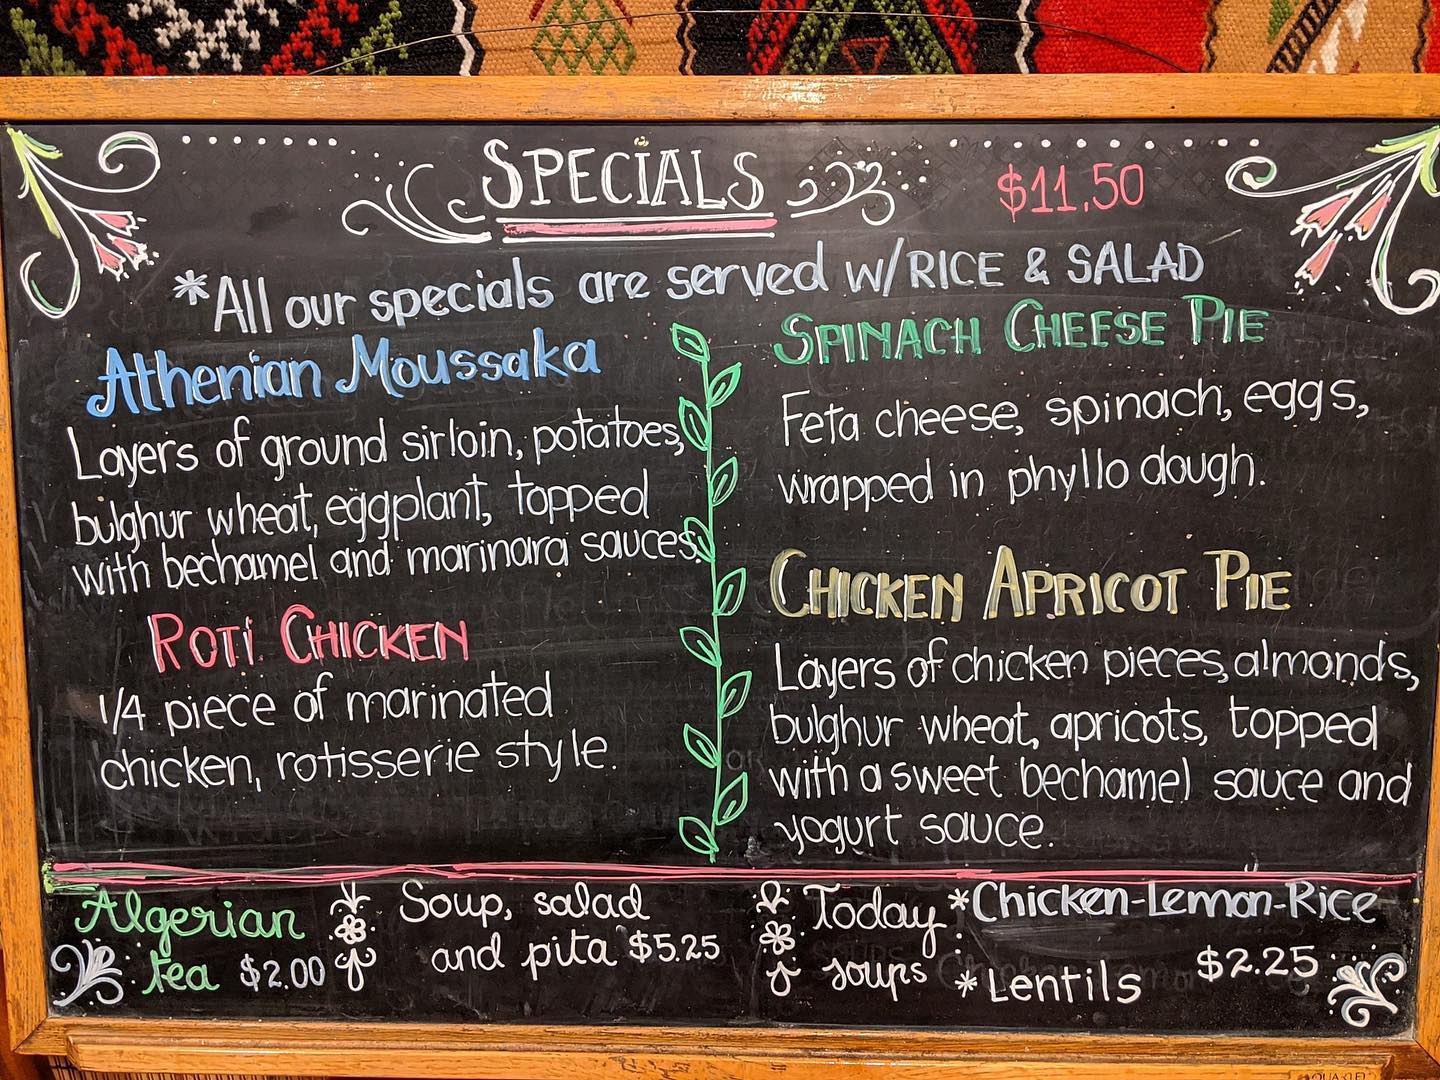 SPECIALS
$11.50
*All our specials are served w/RICE & SALAD
Athenian Moussaka
Layers of ground sirloin, potatoes,
bulghur wheat, eggplant, topped
with bechamel and marinara sauces.
ROTI CHICKEN
1/4 piece of marinated
chicken, rotisserie style.
SPINACH CHEESE PIE
Feta cheese, spinach, eggs,
wrapped in phyllo dough.
CHICKEN APRICOT PIE
Layers of chicken pieces, almonds,
bulghur wheat, apricots, topped
with a sweet bechamel sauce and
yogurt sauce.
Algerian
tea $2.00
Soup, salad
and pita $5.25
Today
soups
*Chicken-Lemon-Rice
*Lentils
$2.25